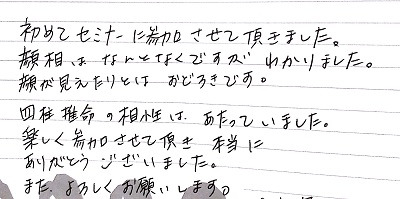 初めてセミナーに参加させて頂きました。
顔相はなんとなくですが わかりました。
顔が見えたりとは おどろきです。
四柱推命の相性は あたっていました。
楽しく参加させて頂き 本当に
ありがとうございました。
また よろしくお願いします。